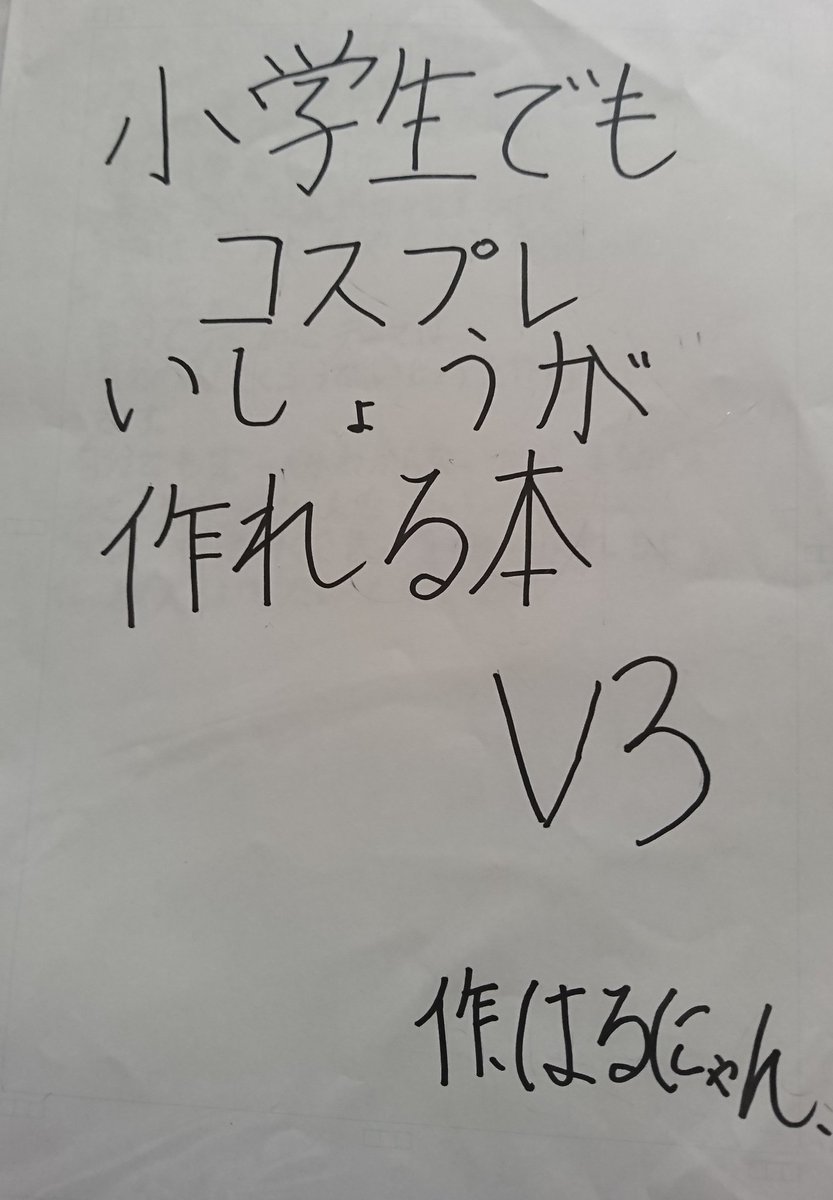 小学生でも
コスプレ
いしょうが
作れる本
V3
作、はるにゃん、